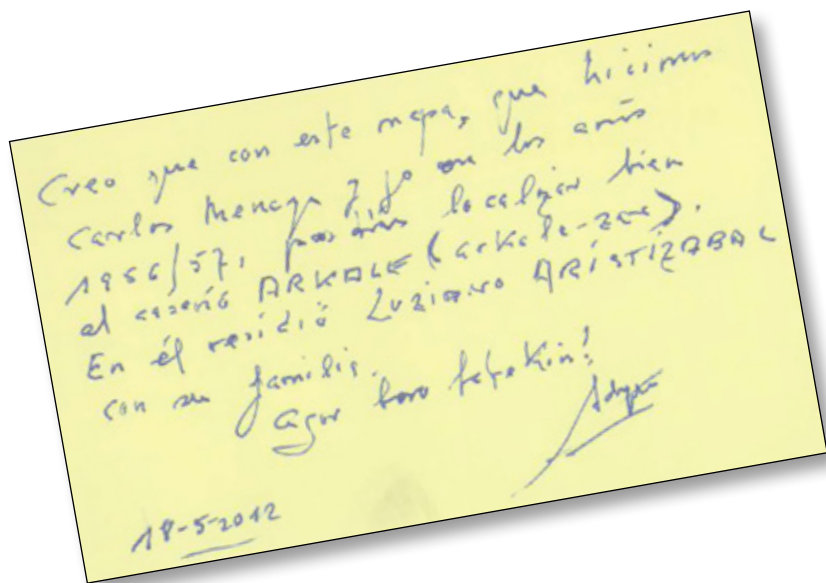 Creo que con este mapa, que hicimos
Carlos Menaya y yo en los años
1956/57, podrás localizar bien
el caserío ARKALE (arkale-zar).
En él residió Luziano ARÍSTIZABAL
con su familia.
agur bero batekin!
18-5-2012